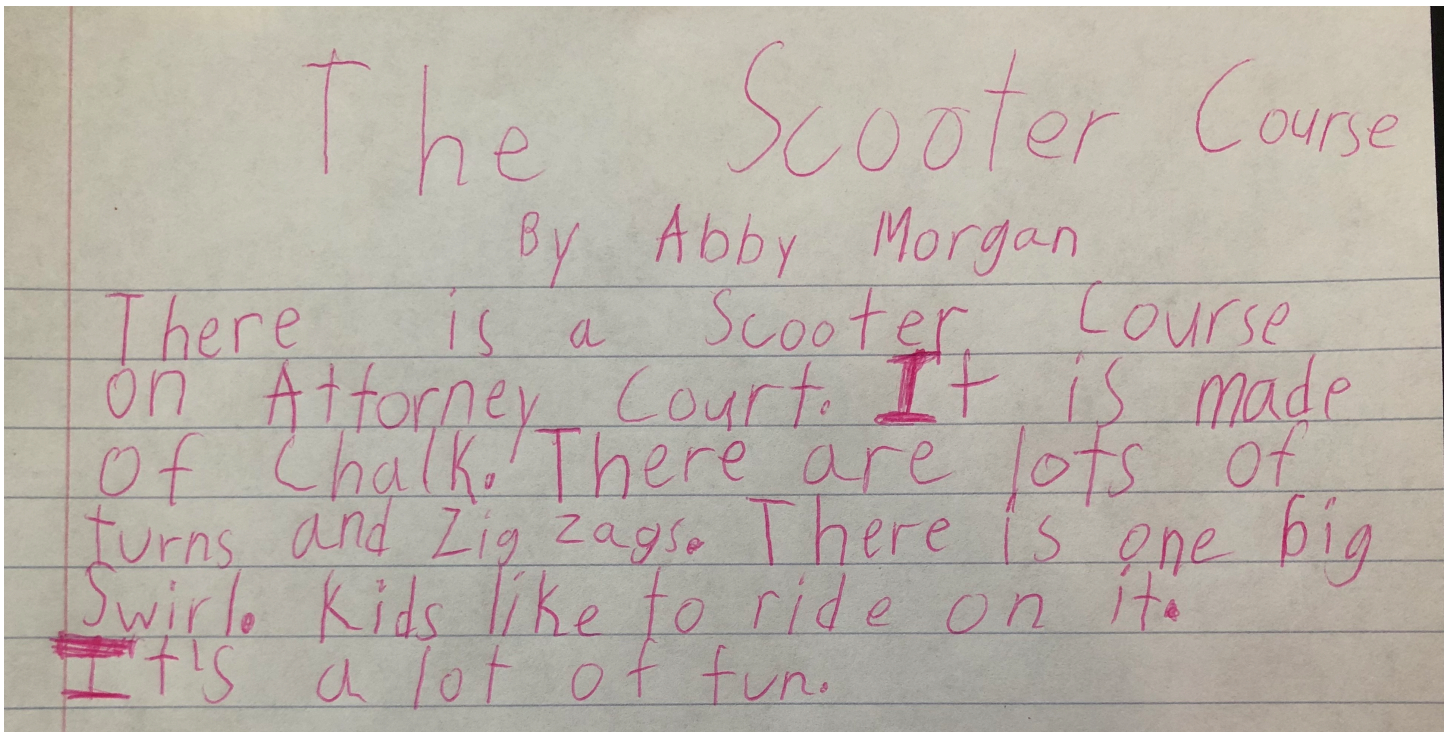 The Scooter Course
By Abby Morgan
There is a Scooter Course
on Attorney Court. It is made
of Chalk. There are lots of
turns and Zig zags. There is one big
Swirl. Kids like to ride on it.
It's a lot of fun.